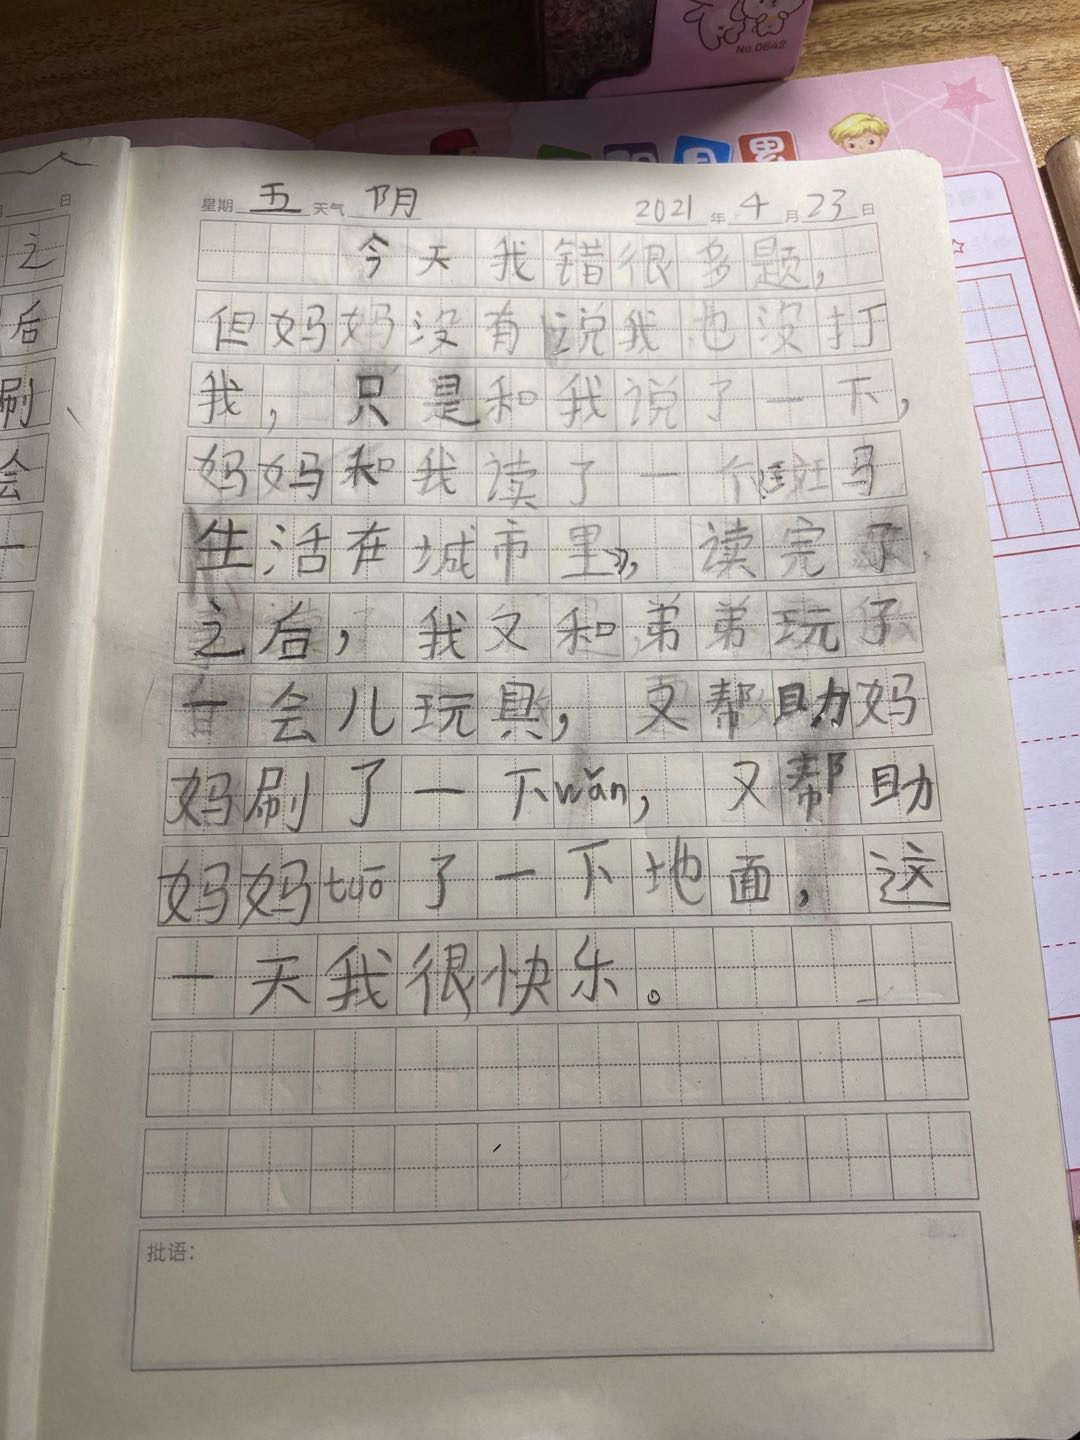 No.0642
星期 五 天气 阴 2021 年 4 月 23 日
今天我错很多题，
但妈妈没有说我也没打
我，只是和我说了一下，
妈妈和我读了一个《斑马
生活在城市里》，读完了
之后，我又和弟弟玩了
一会儿玩具，又帮助妈
妈刷了一下wǎn，又帮助
妈妈tuō了一下地面，这
一天我很快乐。
批语：
日
之
后
刷
会
一